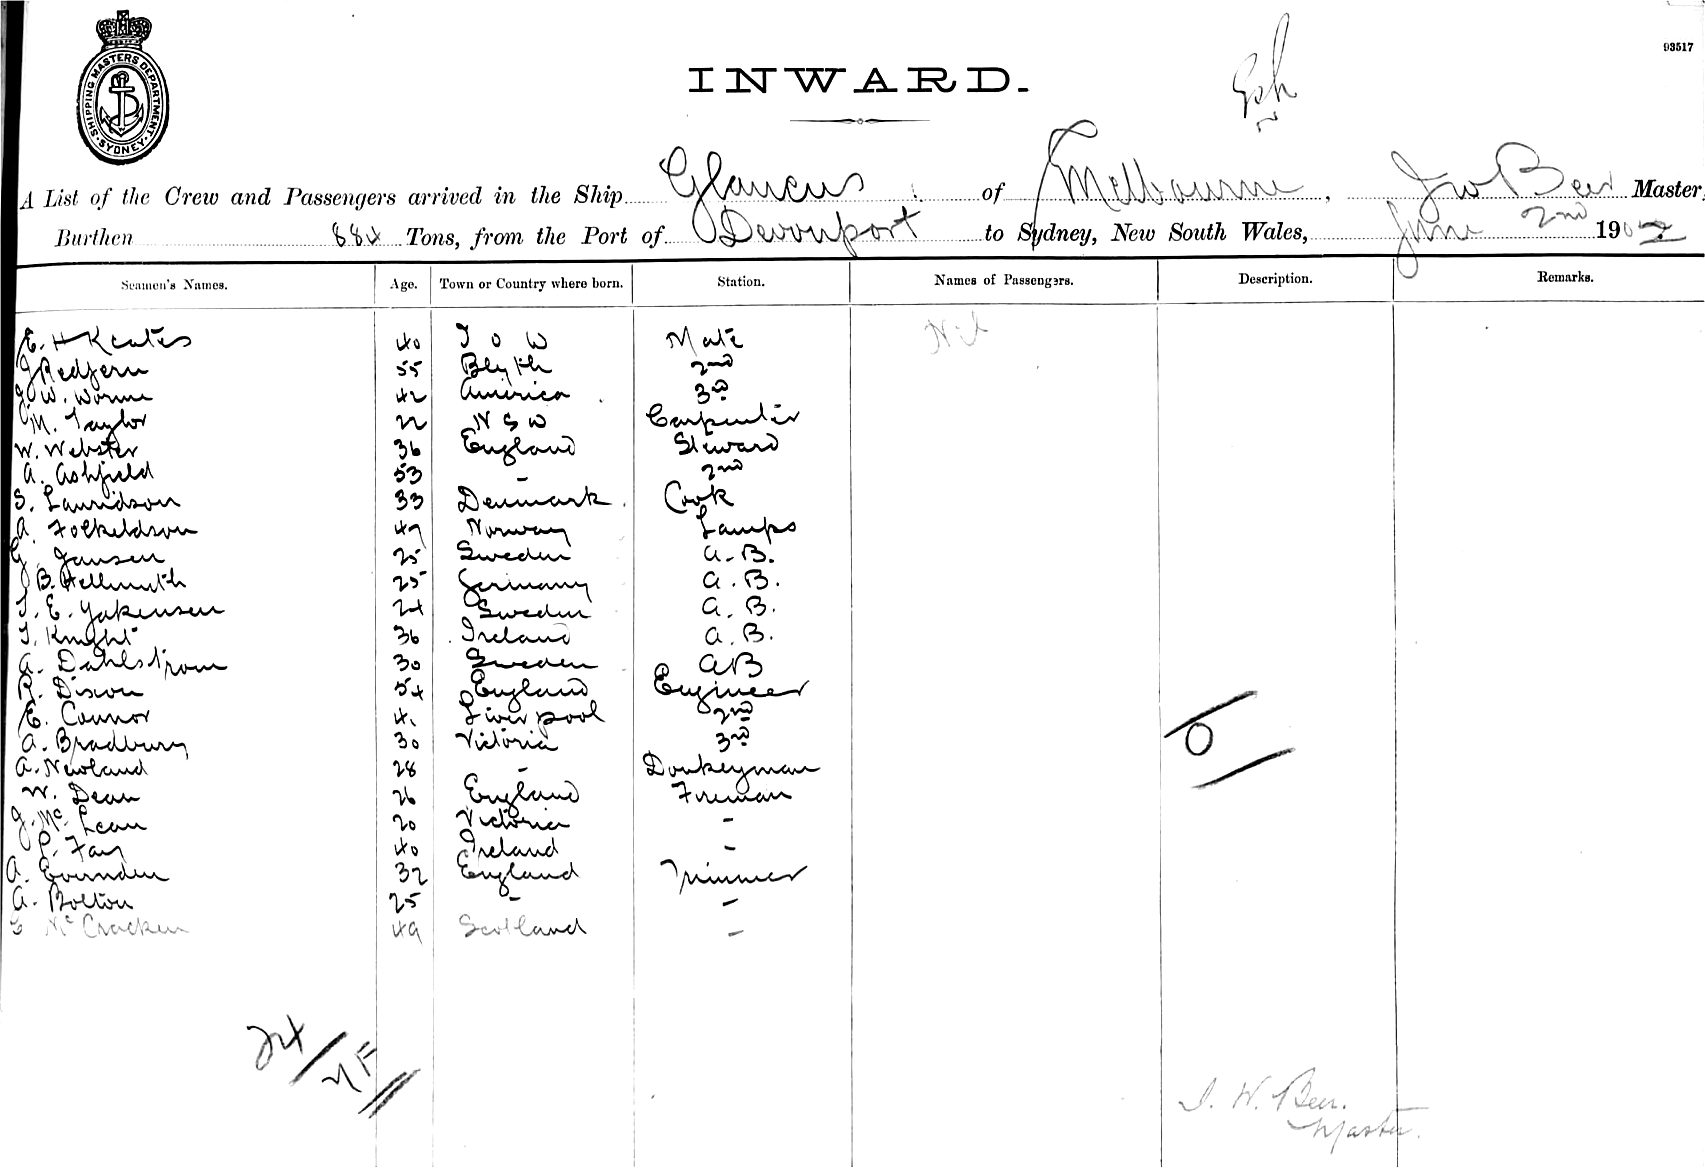 93517
SHIPPING MASTERS DEPARTMENT
SYDNEY
INWARD.
A List of the Crew and Passengers arrived in the Ship Glaucus of Melbourne, J W Beer Master,
Burthen 884 Tons, from the Port of Devonport to Sydney, New South Wales, June 2nd 1902
Seamen's Names. Age. Town or Country where born. Station. Names of Passengers. Description. Remarks.
E. H Keates 40 I O W Mate Nil
J Redfern 55 Blyth 2nd
J W. Worme 42 America 3rd
M. Taylor 22 N S W Carpenter
W. Webster 36 England Steward
A. Ashfield 53 - 2nd
S. Lauridson 33 Denmark Cook
A. Folkeldson 49 Norway Lamps
G. Jansen 25 Sweden A.B.
J B. Hellmuth 25 Germany A.B.
J. E. Yakensen 24 Sweden A.B.
T. Knight 36 Ireland A.B.
A. Dahlstrom 30 Sweden AB
R. Dixon 54 England Engineer
E. Connor 41 Liverpool 2nd
A. Bradbury 30 Victoria 3rd
A. Newland 28 - Donkeyman
W. Dean 26 England Fireman
J. Mc Lean 20 Victoria -
P. Fay 40 Ireland -
A. Evernden 32 England Trimmer
A. Bolton 25 - -
E McCracken 49 Scotland -
24
J. W. Beer.
Master.